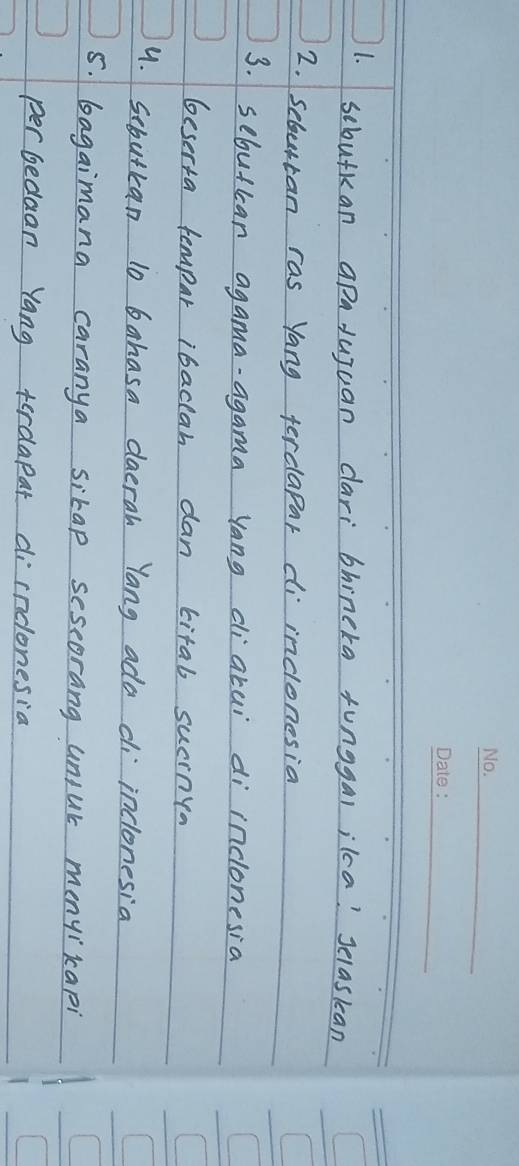 No.
Date :
1. sebutkan apa tujuan dari bhineka tunggal ika! Jelaskan
2. Sebutkan ras yang terdapat di indonesia
3. sebutkan agama-agama yang di akui di indonesia
beserta tempat ibadah dan kitab sucinya
4. Sebutkan 10 bahasa daerah yang ada di indonesia
5. bagaimana caranya sikap seseorang untuk menyikapi
perbedaan yang terdapat di indonesia